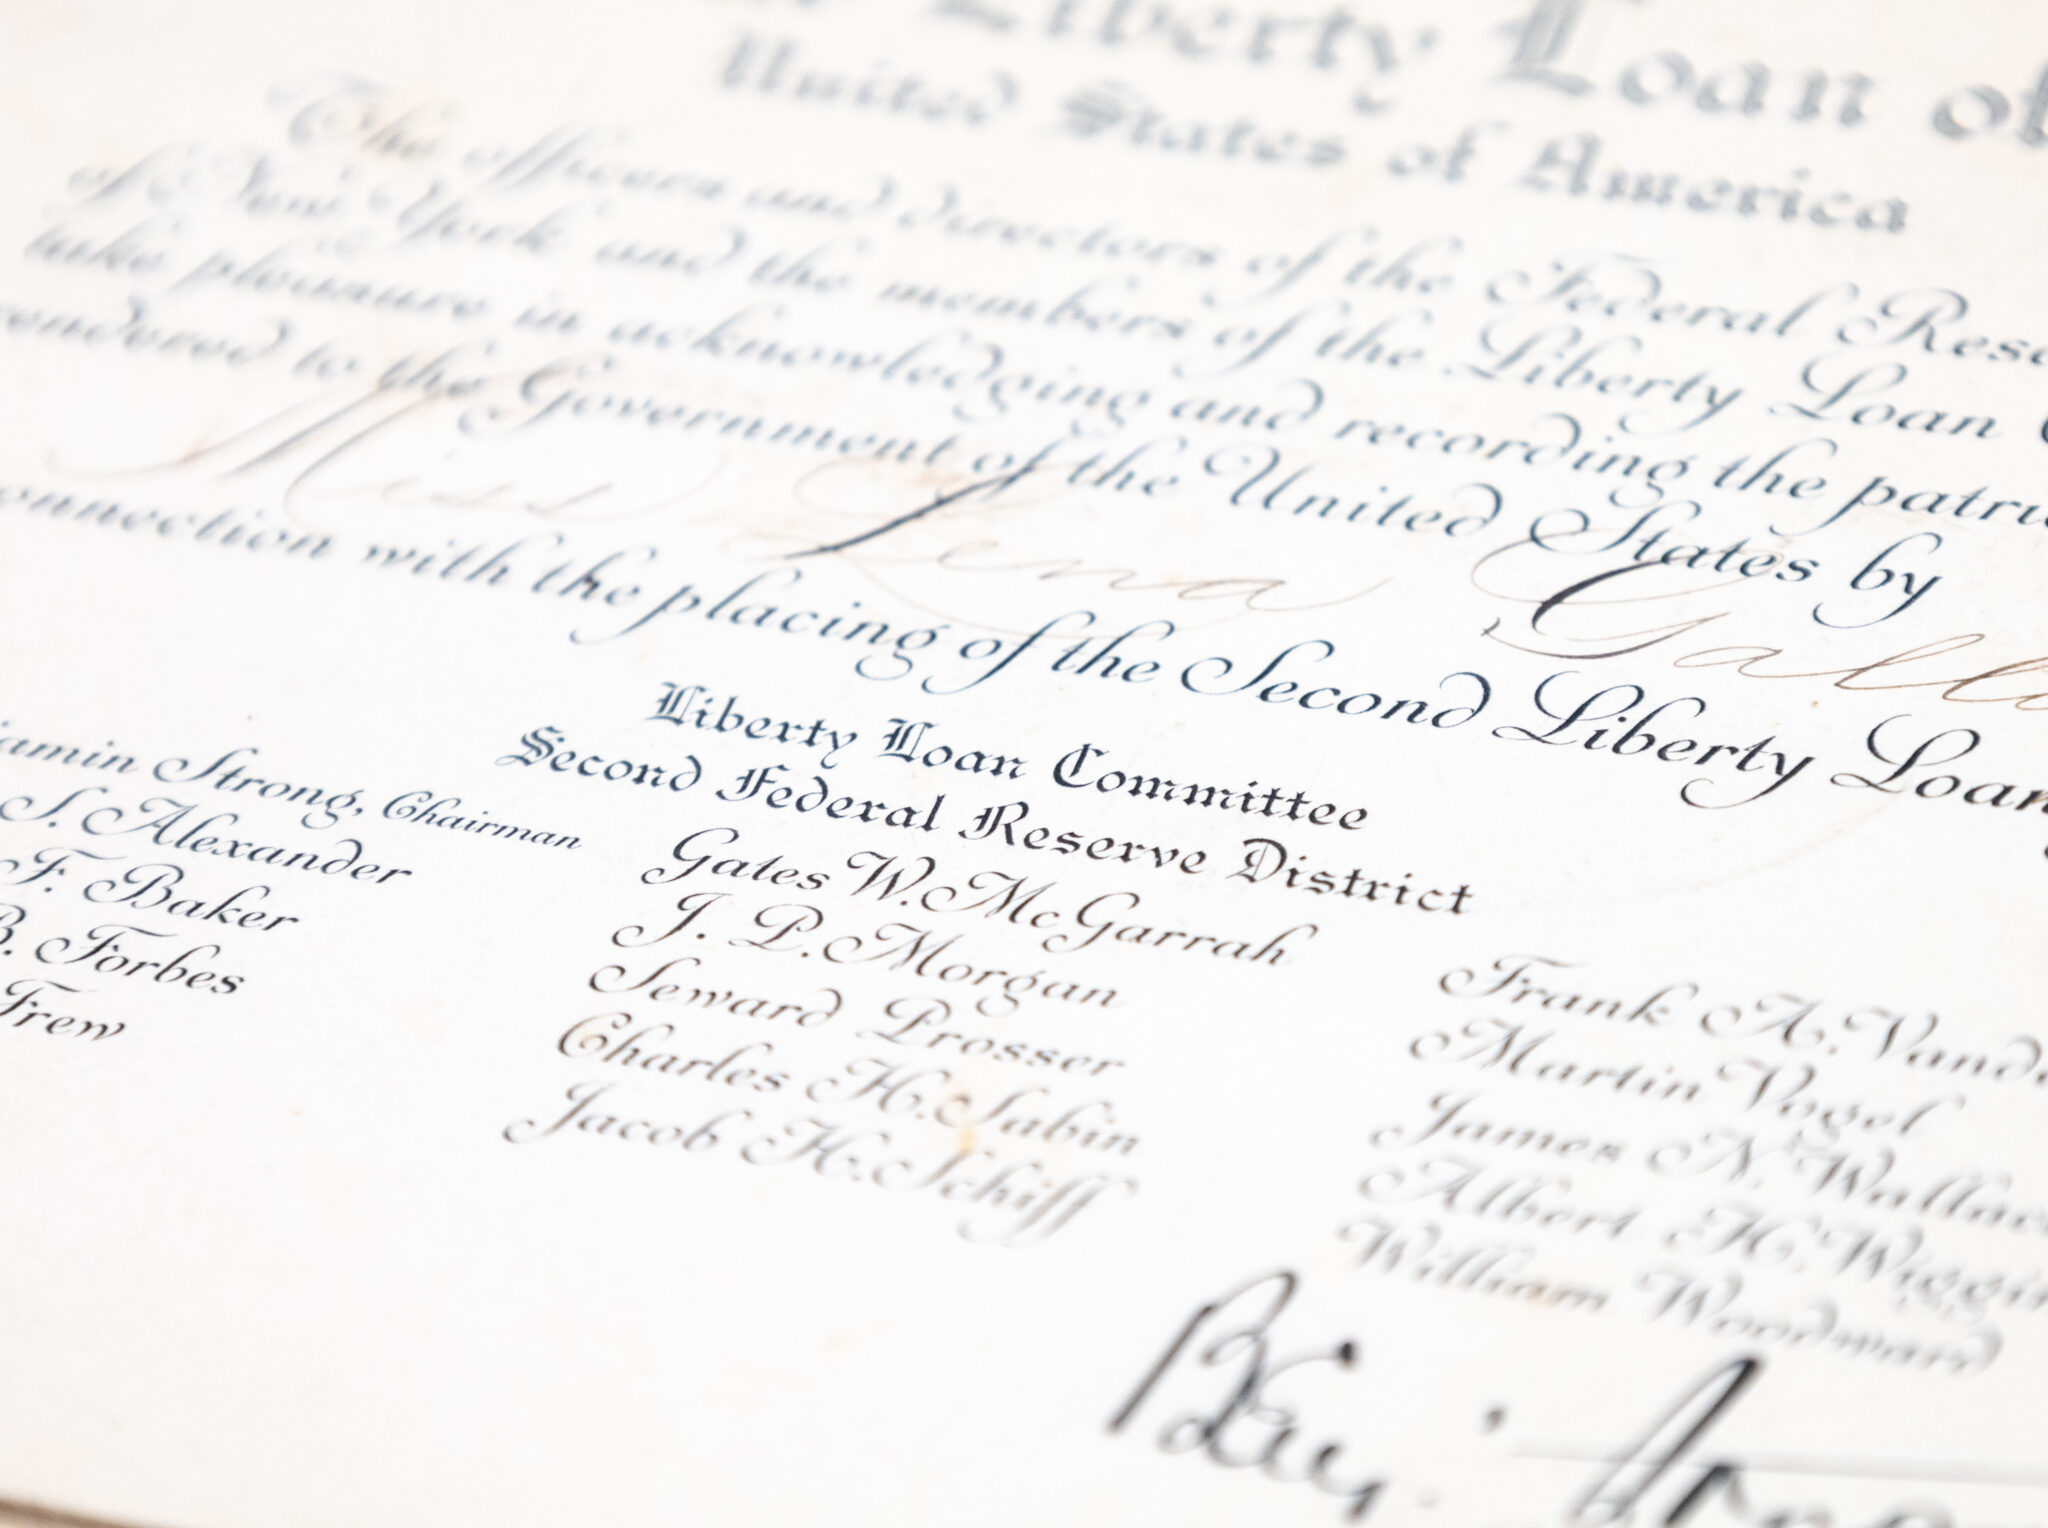 Liberty Loan of
United States of America
The officers and directors of the Federal Rese
of New York and the members of the Liberty Loan
take pleasure in acknowledging and recording the patri
rendered to the Government of the United States by
Miss Lena Gall
onnection with the placing of the Second Liberty Loan
Liberty Loan Committee
Second Federal Reserve District
jamin Strong, Chairman
S. Alexander
F. Baker
B. Forbes
Frew
Gates W. McGarrah
J. P. Morgan
Seward Prosser
Charles H. Sabin
Jacob H. Schiff
Frank A. Vande
Martin Vogel
James N. Wallac
Albert H. Wiggin
William Woodward
Benj. Strong